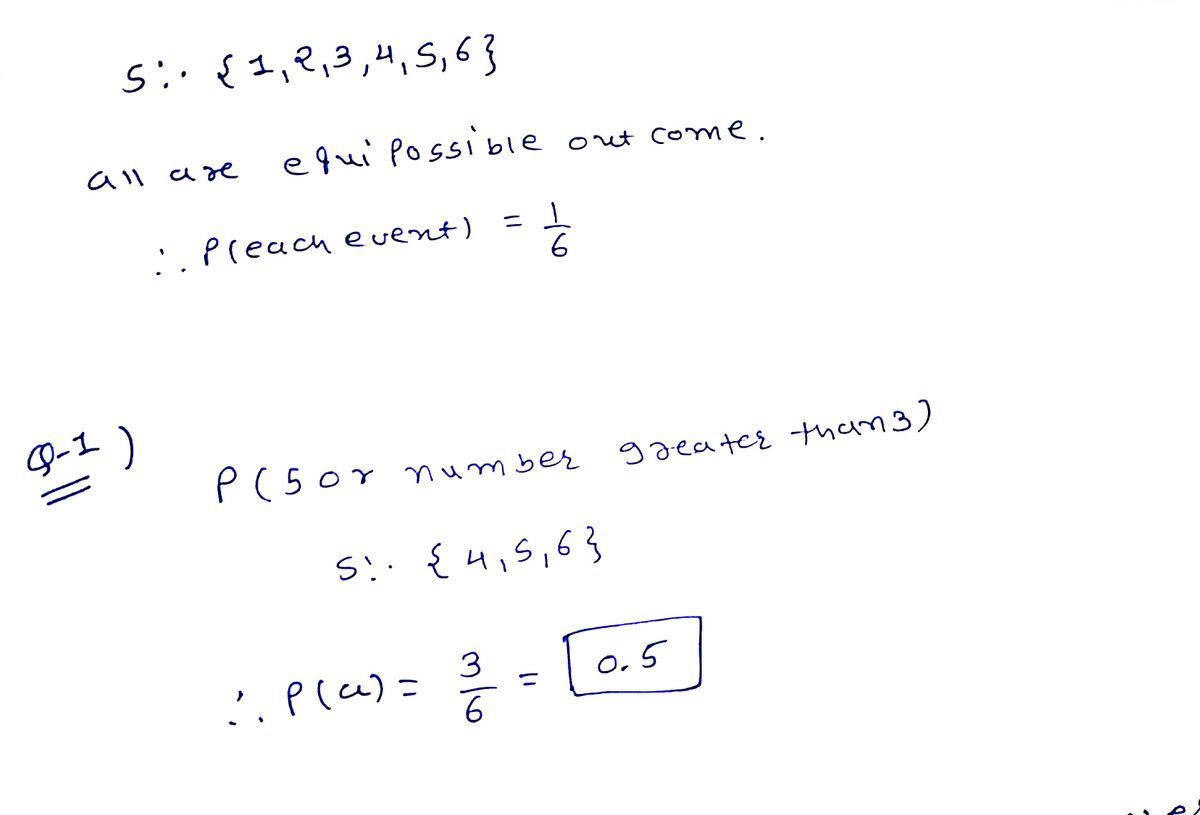 S:· {1,2,3,4,5,6}
all are equi possible out come.
∴ P(each event) = 1/6
Q-1)
P(5 or number greater than 3)
S:· {4,5,6}
∴ P(a) = 3/6 = 0.5